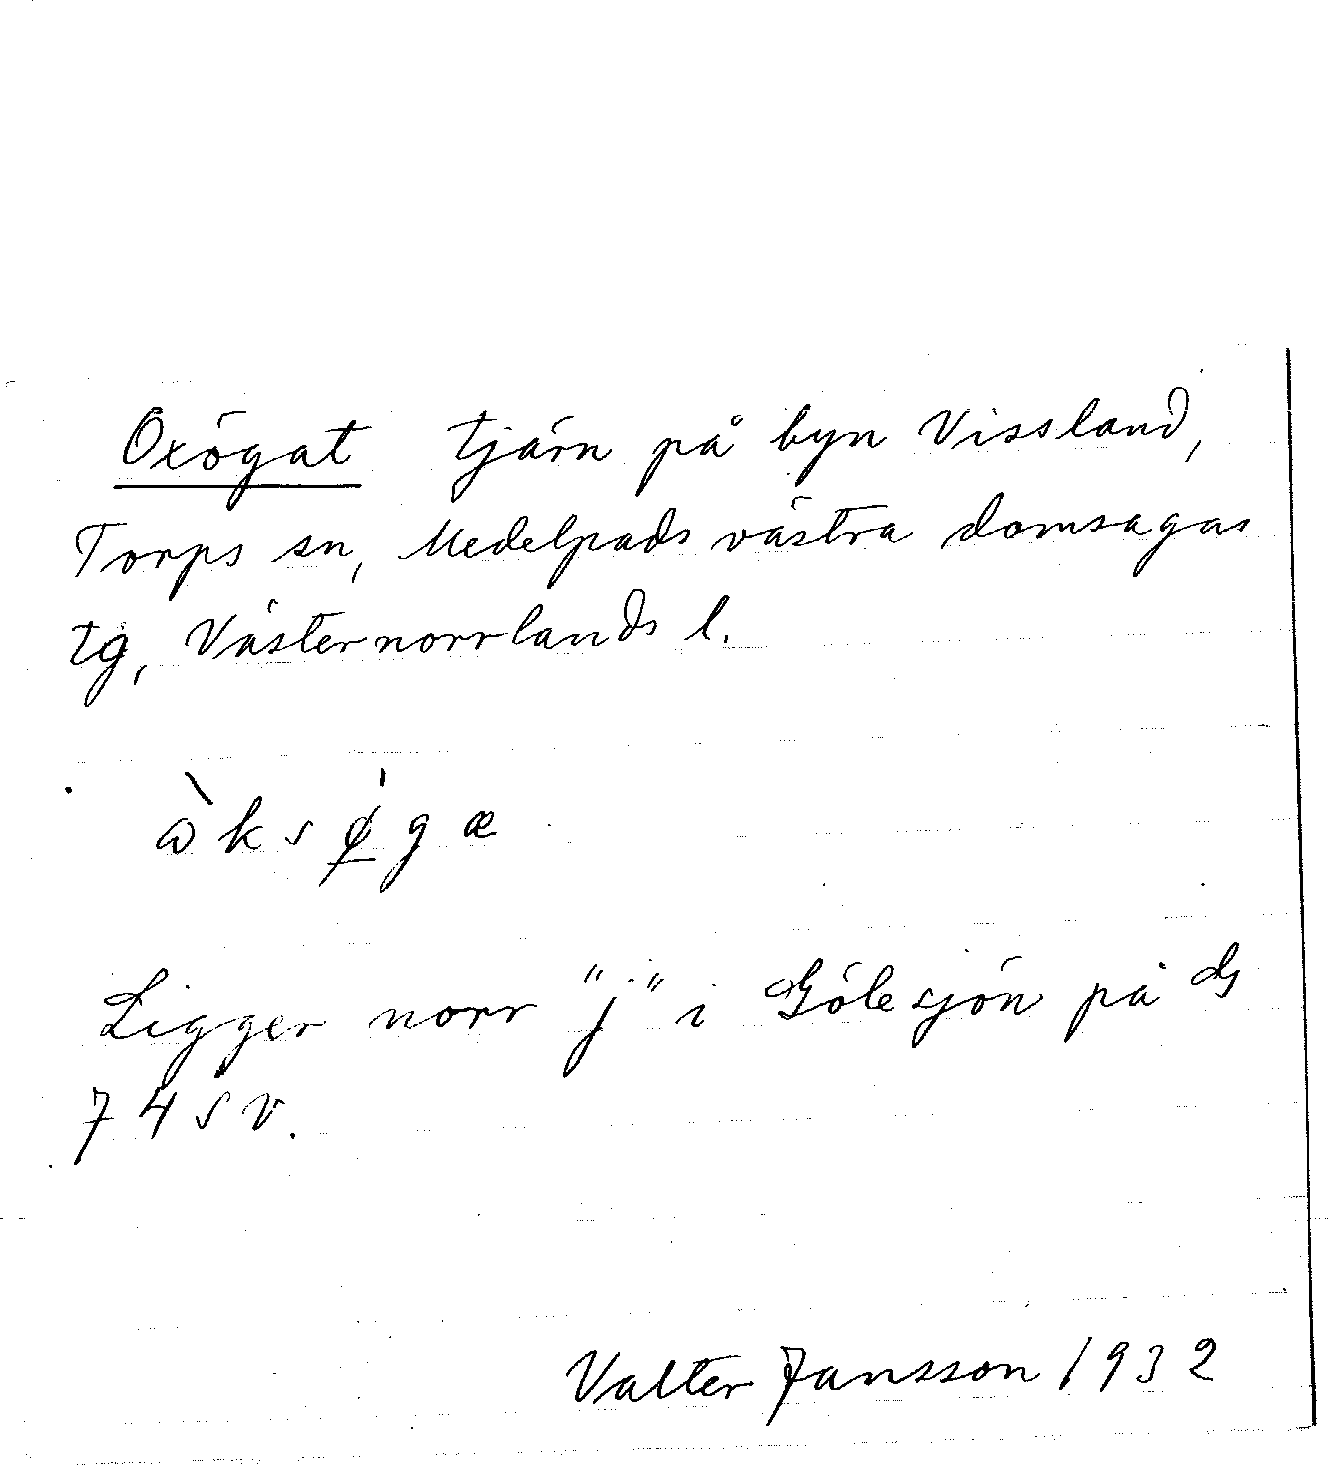 Oxögat tjärn på byn Vissland,
Torps sn, Medelpads västra domsagas
tg, Västernorrlands l.
ὼksǿ̨gæ
Ligger norr "j" i Gölesjön på ds
74 sv.
Valter Jansson 1932